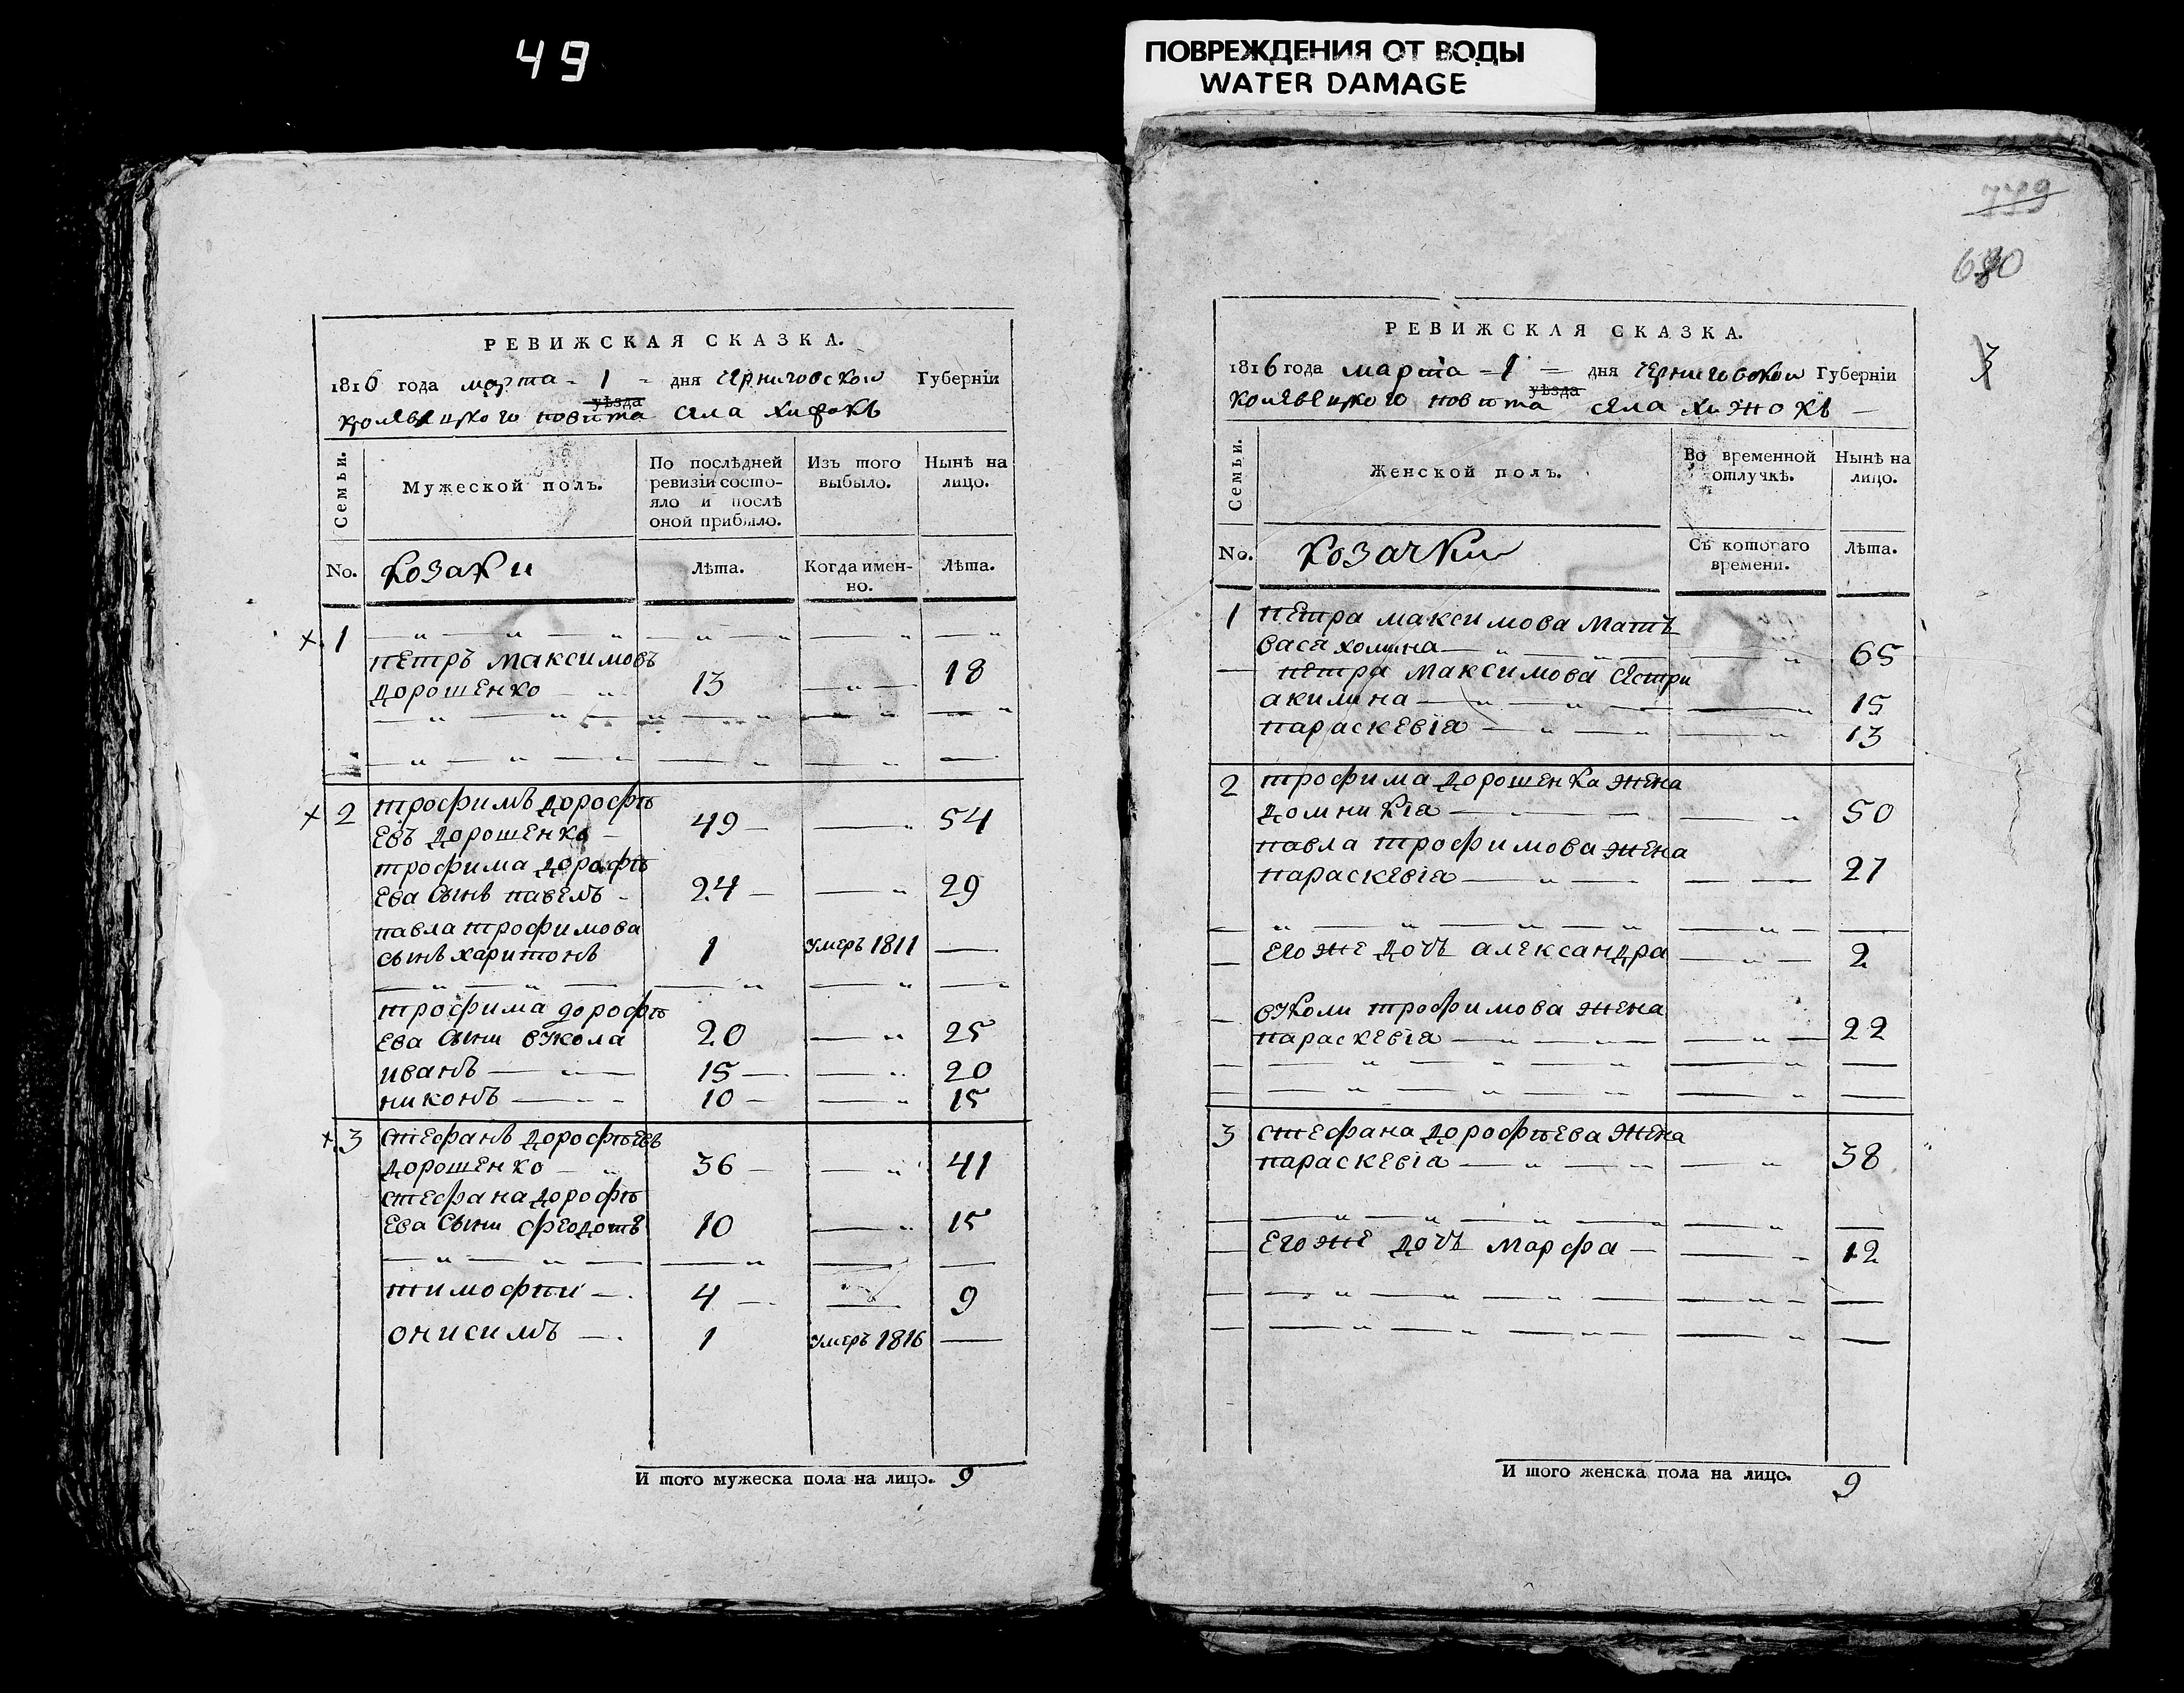 49
ПОВРЕЖДЕНИЯ ОТ ВОДЫ
WATER DAMAGE
РЕВИЖСКАЯ СКАЗКА.
1816 года марта - 1 - дня Черниговской Губерніи
уѣзда
повѣта села Хижокъ
Семьи.
Мужеской полъ.
По послѣдней ревизіи состо-
яло и послѣ
оной прибыло.
Изъ того
выбыло.
Нынѣ на
лицо.
No.
козаки
Лѣта.
Когда имен-
но.
Лѣта.
1
петръ Максимовъ
дорошенко 13 18
2 трофимъ дорофѣ
евъ дорошенко 49 54
трофима дорофѣ
ева сынъ павелъ 24 29
павла трофимова
сынъ харитонъ 1 умеръ 1811
трофима дорофѣ
ева сыни вукола 20 25
иванъ 15 20
никонъ 10 15
3 стефанъ дорофѣевъ
дорошенко 36 41
стефана дорофѣ
ева сыни феодотъ 10 15
тимофѣй 4 9
онисимъ 1 умеръ 1816
И того мужеска пола на лицо. 9
779
3
РЕВИЖСКАЯ СКАЗКА.
1816 года марта - 1 = дня Черниговской Губерніи
уѣзда
повѣта села Хижокъ
Семьи.
Женской полъ.
Во временной
отлучкѣ.
Нынѣ на
лицо.
No.
козачки
Съ котораго
времени.
Лѣта.
1 петра максимова мать
65
петра максимова сестри
акилина 15
параскевіа 13
2 трофима дорошенка жена
домникіа 50
павла трофимова жена
параскевіа 27
его же дочь александра 2
вуколи трофимова жена
параскевіа 22
3 стефана дорофѣева жена
параскевіа 38
его же дочь марфа 12
И того женска пола на лицо. 9